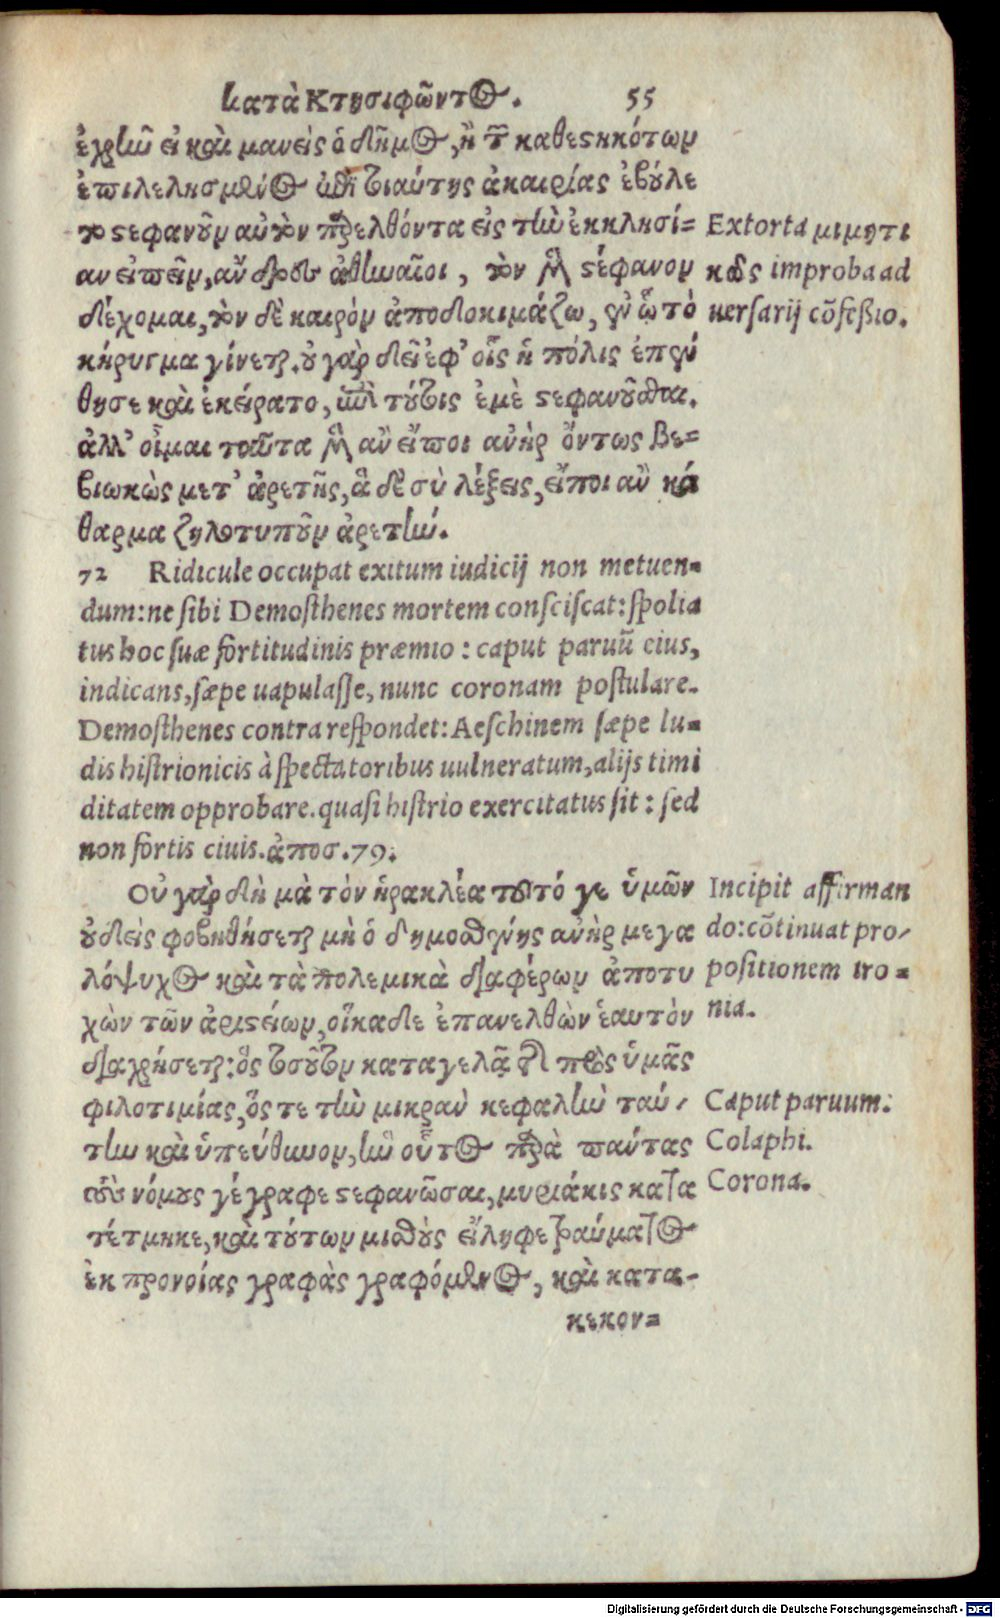 κατὰ Κτησιφῶντος. 55
ἐχρῆν εἰ καὶ μανεὶς ὁ δῆμος, ἢ τῶν καθεστηκότων
ἐπιλελησμένος ἐπὶ τοιαύτης ἀκαιρίας ἐβούλε
το στεφανοῦν αὐτὸν παρελθόντα εἰς τὴν ἐκκλησί=
αν εἰπεῖν, ἄνδρες ἀθηναῖοι, τὸν μὲν στέφανον
δέχομαι, τὸν δὲ καιρὸν ἀποδοκιμάζω, ἐν ᾧ τὸ
κήρυγμα γίνεται. οὐ γὰρ δεῖ ἐφ' οἷς ἡ πόλις ἐπέν
θησε καὶ ἐκείρατο, ἐπὶ τούτοις ἐμὲ στεφανοῦσθαι.
ἀλλ' οἶμαι ταῦτα μὲν ἂν εἴποι ἀνὴρ ὄντως βε=
βιωκὼς μετ' ἀρετῆς, ἃ δὲ σὺ λέξεις, εἴποι ἂν κά
θαρμα ζηλοτυποῦν ἀρετήν.
Extorta μιμητι
κῶς improba ad
uersarij cōfeßio.
72 Ridicule occupat exitum iudicij non metuen=
dum: ne sibi Demosthenes mortem consciscat: spolia
tus hoc suæ fortitudinis præmio: caput paruũ eius,
indicans, sæpe uapulasse, nunc coronam postulare.
Demosthenes contra respondet: Aeschinem sæpe lu=
dis histrionicis à spectatoribus uulneratum, alijs timi
ditatem opprobare. quasi histrio exercitatus sit: sed
non fortis ciuis. ἀποσ. 79.
Οὐ γὰρ δὴ μὰ τὸν ἡρακλέα τοῦτό γε ὑμῶν
οὐδεὶς φοβηθήσεται μὴ ὁ δημοσθένης ἀνὴρ μεγα
λόψυχος καὶ τὰ πολεμικὰ διαφέρων ἀποτυ
χὼν τῶν ἀριστείων, οἴκαδε ἐπανελθὼν ἑαυτὸν
διαχρήσεται: ὃς τοσοῦτον καταγελᾷ τῆς πρὸς ὑμᾶς
φιλοτιμίας, ὥστε τὴν μικρὰν κεφαλὴν ταύ-
την καὶ ὑπεύθυνον, ἣν οὗτος παρὰ πάντας
τοὺς νόμους γέγραφε στεφανῶσαι, μυριάκις κατα
τέτμηκε, καὶ τούτων μισθοὺς εἴληφε τραύματος
ἐκ προνοίας γραφὰς γραφόμενος, καὶ κατα-
κεκον=
Incipit affirman
do: cōtinuat pro-
positionem iro=
nia.
Caput paruum.
Colaphi.
Corona.
Digitalisierung gefördert durch die Deutsche Forschungsgemeinschaft - DFG